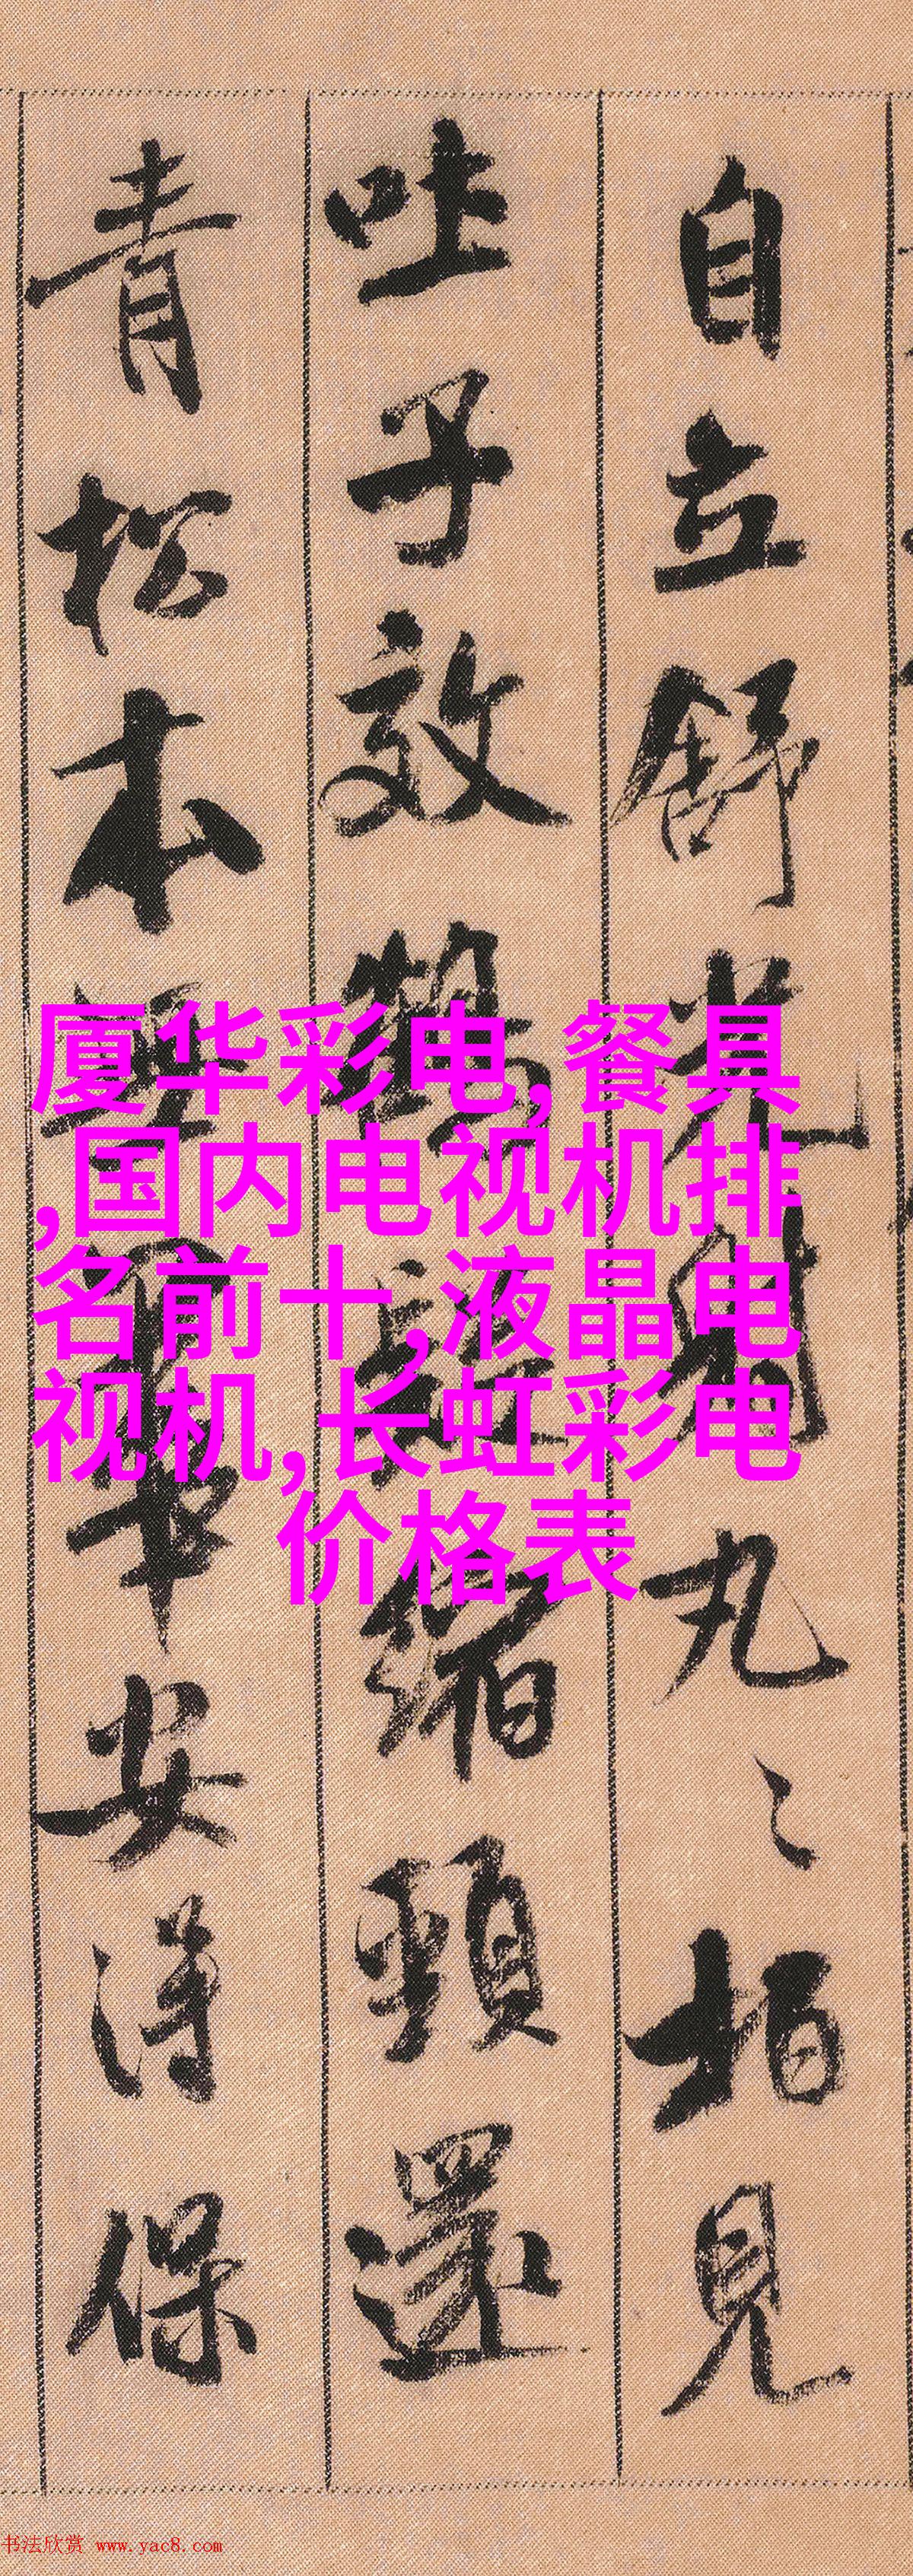 自立舒光射丸〻柏見
吐子效鶴疑縮頸還
青松本無華安得保
厦华彩电,餐具
,国内电视机排
名前十,液晶电
视机,长虹彩电
价格表
书法欣赏 www.yac8.com